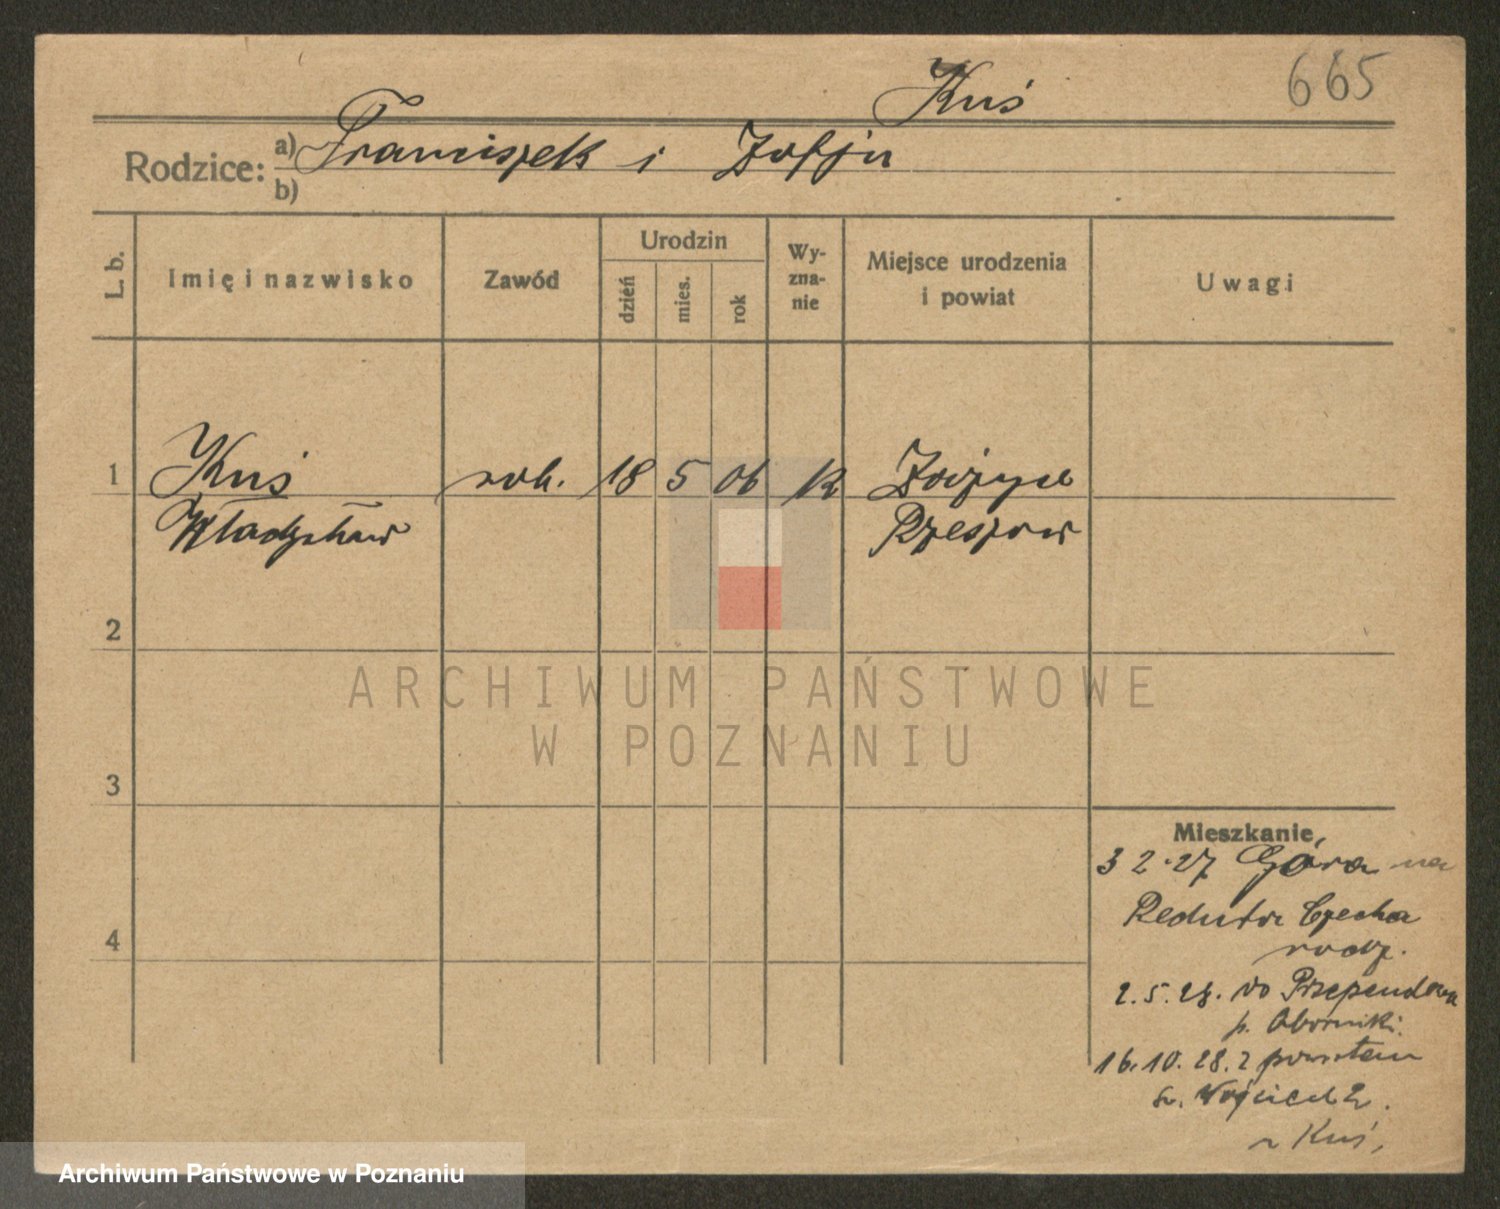 665
Kuś
Rodzice: a) Franciszek i Zofja
b)
L. b.
Imię i nazwisko
Zawód
Urodzin
dzień
mies.
rok
Wy-
zna-
nie
Miejsce urodzenia
i powiat
Uwagi
1 Kuś rob. 18 5 06 k
Władysław Rzeszow
2
3
4
Mieszkanie,
3 2.27 Góra na
Reduta Czecha
rodz.
2.5.28. do Przependowa
p. Oborniki.
16.10.28. z powrotem
św. Wojciech 2.
Kuś,
ARCHIWUM PAŃSTWOWE
W POZNANIU
Archiwum Państwowe w Poznaniu